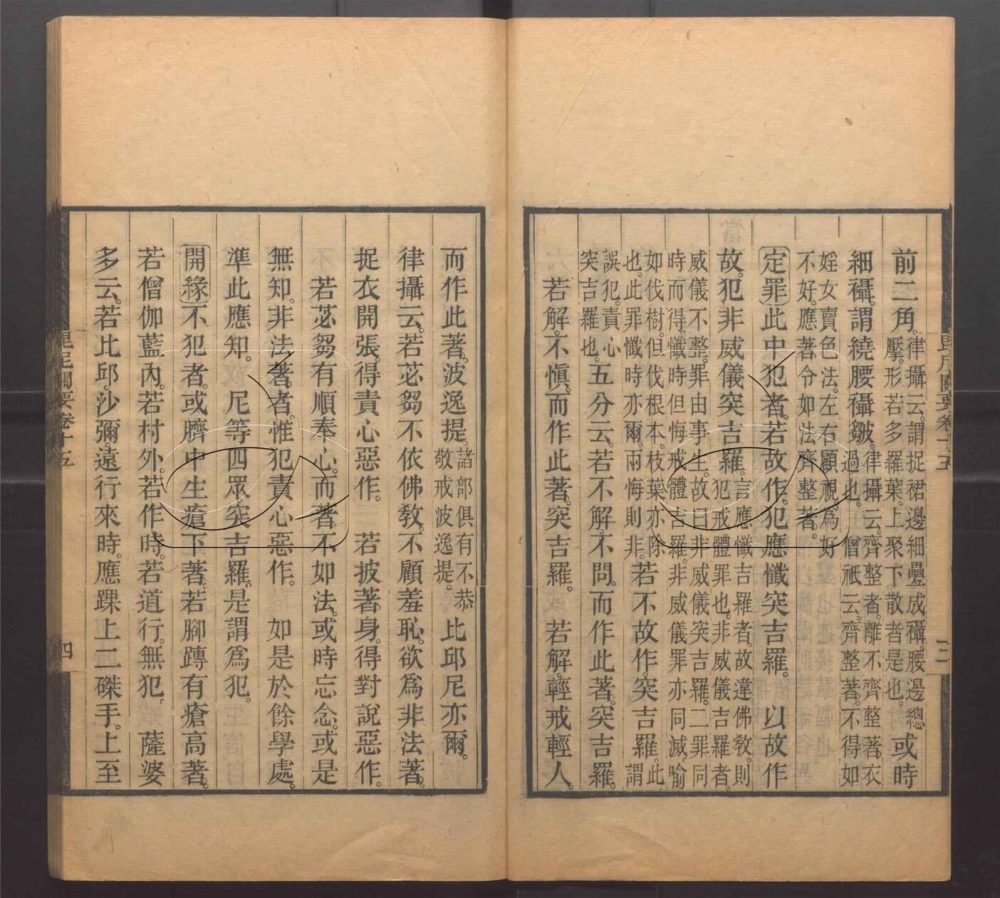 前二角。律攝云謂捉裙邊細疊成襵腰邊總
壓。形若多羅葉。上聚下散者是也。或時
細襵。謂繞腰襵皺。律攝云齊整者離不齊整著衣
過也。僧祇云。齊整著。不得如
婬女賣色法左右顧視為好
不好。應著令如法齊整著。
定罪此中犯者。若故作。犯應懺突吉羅。以故作
故。犯非威儀突吉羅。言應懺吉羅者。故違佛敎。則
犯戒體罪也。非威儀吉羅者。
威儀不整。罪由事生。故曰非威儀突吉羅。二罪同
時而得。懺時但悔戒體吉羅。非威儀罪亦同滅。喻
如伐樹。但伐根本。枝葉亦除
也。此罪懺時亦爾。兩悔則非。若不故作突吉羅。此謂
誤犯。責心
突吉羅也。五分云。若不解不問。而作此著。突吉羅。
若解。不愼。而作此著。突吉羅。若解。輕戒輕人。
而作此著。波逸提。諸部俱有不恭
敬戒波逸提。比邱尼亦爾。
律攝云。若苾芻不依佛敎。不顧羞恥。欲為非法著。
捉衣開張。得責心惡作。若披著身。得對說惡作。
若苾芻有順奉心。而著不如法。或時忘念。或是
無知。非法著者。惟犯責心惡作。如是於餘學處。
準此應知。尼等四眾。突吉羅。是謂為犯。
開緣不犯者。或臍中生瘡下著。若腳蹲有瘡高著。
若僧伽藍內。若村外。若作時。若道行。無犯。薩婆
多云。若比邱。沙彌。遠行來時。應踝上二磔手。上至
毘尼關要卷十五
四